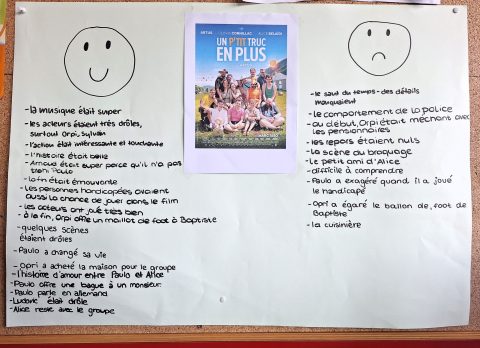 - la musique était super
- les acteurs étaient très drôles,
surtout Orpi, Sylvain
- l'action était intéressante et touchante
- l'histoire était belle
- Arnaud était super parce qu'il n'a pas
Paulo
- la fin était émouvante
- Les personnes handicapées avaient
aussi la chance de jouer dans le film
- les acteurs ont joué très bien
- à la fin, Orpi offre un maillot de foot à Baptiste
- quelques scènes
étaient drôles
- Paulo a changé sa vie
- Opri a acheté la maison pour le groupe
- l'histoire d'amour entre Paulo et Alice
- Paulo offre une bague à un monsieur
- Paulo parle en allemand
- Ludovic était drôle
- Alice reste avec le groupe
ARTUS CLOVIS CORNILLAC ALICE BELAÏDI
UN P'TIT TRUC
EN PLUS
- le saut du temps - des détails
manquaient
- le comportement de la police
- au début, Orpi était méchant avec
les pensionnaires
- les repas étaient nuls
- la scène du braquage
- Le petit ami d'Alice
- difficile à comprendre
- Paulo a exagéré quand il a joué
le handicapé
- Opri a égaré le ballon de foot de
Baptiste
- la cuisinière